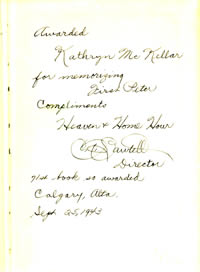 Awarded
Kathryn Mc Kellar
for memorizing
First Peter
Compliments
Heaven & Home Hour
Director
71st book so awarded
Calgary, Alta.
Sept 25, 1943